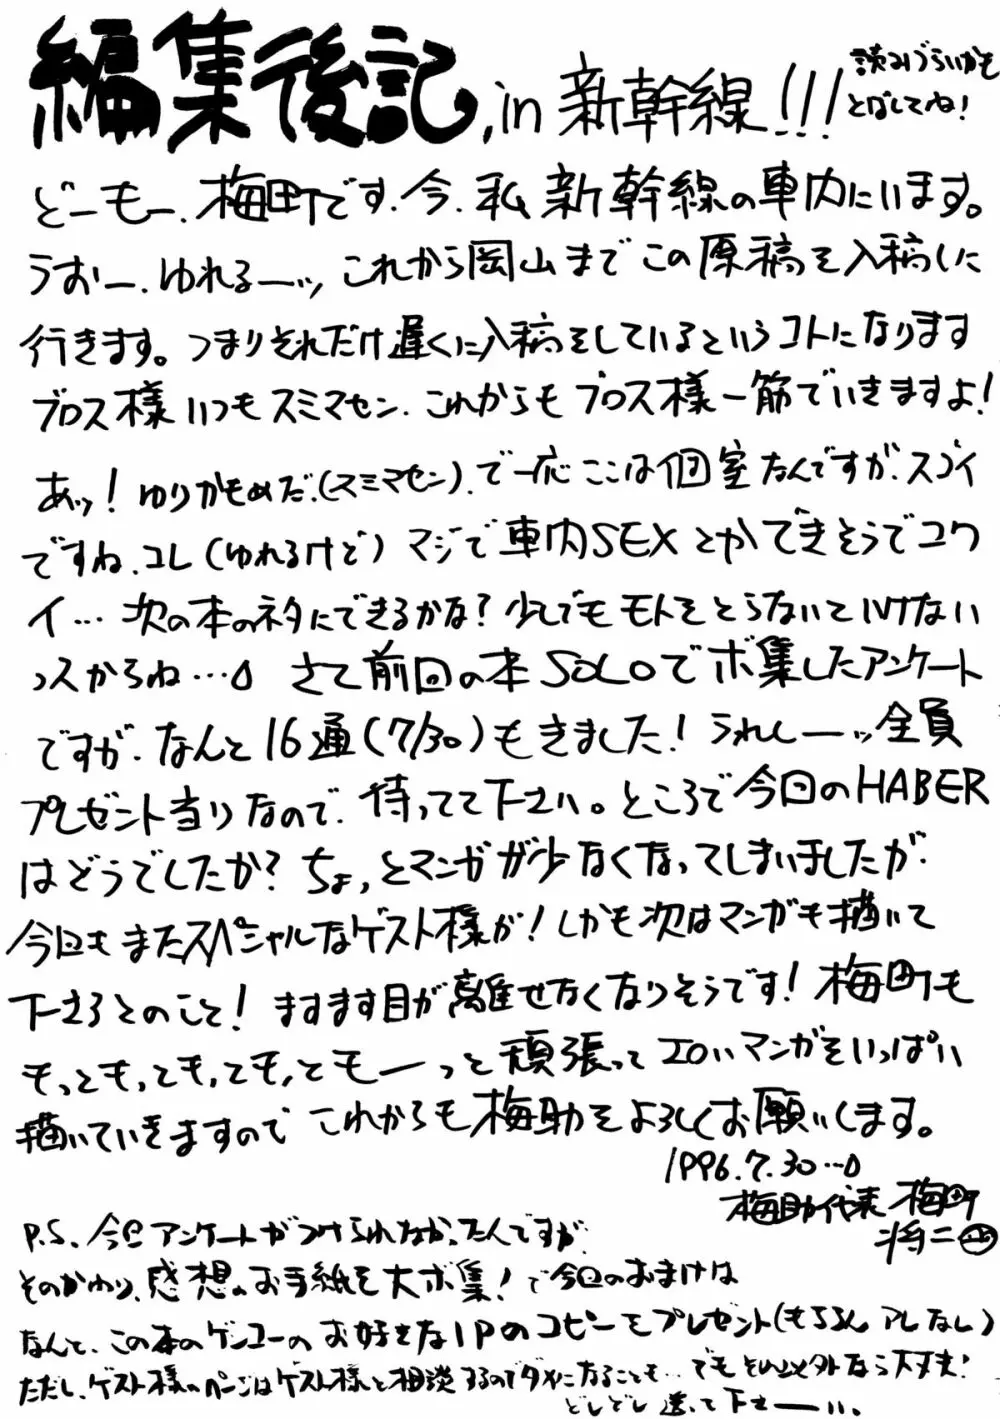 編集後記 in 新幹線!!!
読みづらいかも
とばしてね!
どーもー、梅町です。今、私新幹線の車内にいます。
うおー、ゆれるーッ これから岡山までこの原稿を入稿しに
行きます。つまりそれだけ遅くに入稿をしているというコトになります
ブロス様いつもスミマセン、これからもブロス様一筋でいきますよ!
あッ!ゆりかもめだ。(スミマセン)、で一応ここは個室なんですが、スゴイ
ですね、コレ(ゆれるけど)マジで車内SEXとかできそうでコワ
イ…次の本のネタにできるかな?少しでもモトをとらないといけない
っスからね… さて前回の本SOLOでボ集したアンケート
ですが、なんと16通(7/30)もきました!うれしーッ全員
プレゼント当りなので、待ってて下さい。ところで今回のHABER
はどうでしたか?ちょっとマンガが少なくなってしまいましたが、
今回もまたスペシャルなゲスト様が!しかも次はマンガも描いて
下さるとのこと!ますます目が離せなくなりそうです!梅町も
もっともっとも、とも、ともーっと頑張ってエロいマンガをいっぱい
描いていきますので これからも梅助をよろしくお願いします。
1996.7.30…
梅助代表 梅町
将二
P.S. 今回アンケートがつけられなかったんですが、
そのかわり、感想のお手紙を大ボ集!で今回のおまけは
なんと、この本のゲンコーのお好きな1Pのコピーをプレゼント(もちろんアレなし)
ただし、ゲスト様のページはゲスト様と相談するのでダメになることも…でもそれ以外なら大丈夫!
どしどし送って下さーい。